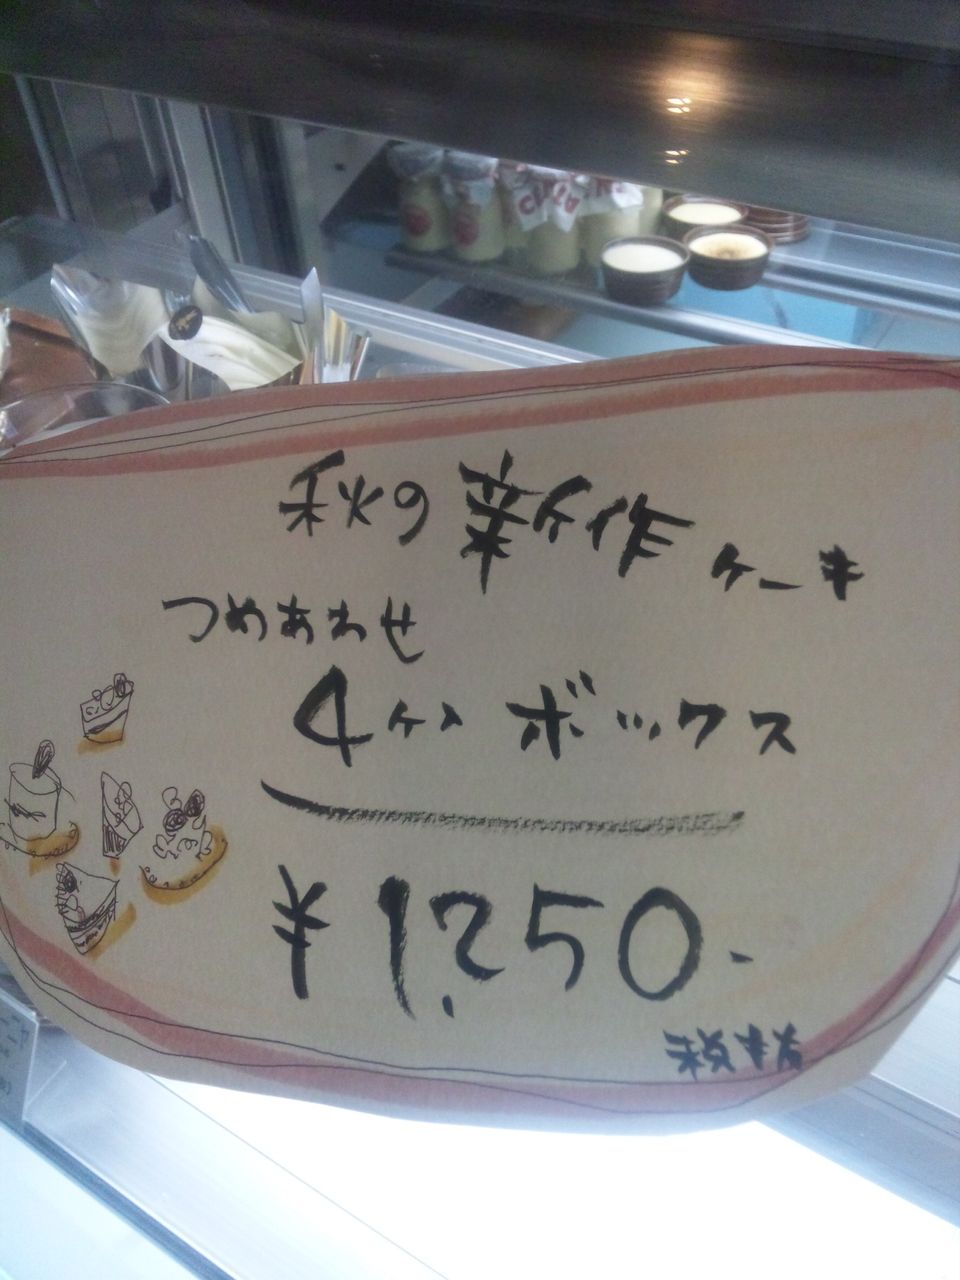 秋の新作ケーキ
つめあわせ
4ヶ入ボックス
¥1,250-
税抜